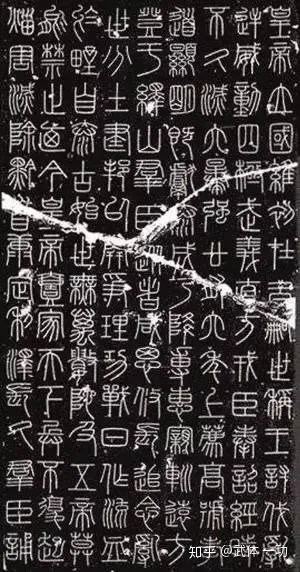 皇帝立國維初在昔嗣世稱王討伐亂
逆威動四極武義直方戎臣奉詔經時
不久滅六暴強廿有六年上薦高號孝
道顯明既獻泰成乃降專惠寴輶遠方
登于繹山群臣從者咸思攸長追念亂
世分土建邦以開爭理功戰日作流血
於野自泰古始世無萬數陀及五帝莫
能禁止廼今皇帝壹家天下兵不復起
災害滅除黔首康定利澤長久群臣誦
知乎 @武体一功